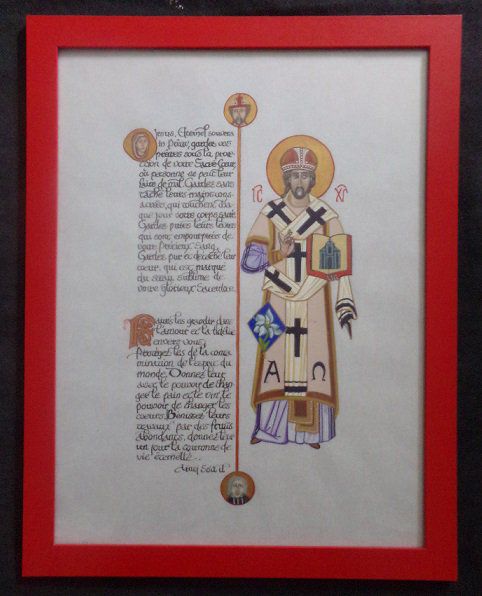 Jésus, Eternel souverain
Prêtre, gardez vos
prêtres sous la protection
de votre Sacré Cœur,
où personne ne peut leur
faire de mal. Gardez sans
tâche leurs mains consacrées,
qui touchent chaque
jour votre corps sacré.
Gardez pures leurs lèvres
qui sont empourprées de
votre Précieux Sang.
Gardez pur et détaché leur
cœur, qui est marqué
du sceau sublime de
votre Glorieux Sacerdoce.
Faites les grandir dans
l'amour et la fidélité
envers vous,
Protégez les de la contamination
de l'esprit du
monde. Donnez leur
avec le pouvoir de changer
le pain et le vin, le
pouvoir de changer les
cœurs. Bénissez leurs
travaux par des fruits
abondants, donnez leur
un jour la couronne de
vie éternelle..
Ainsi Soit il
IC XC
Α Ω